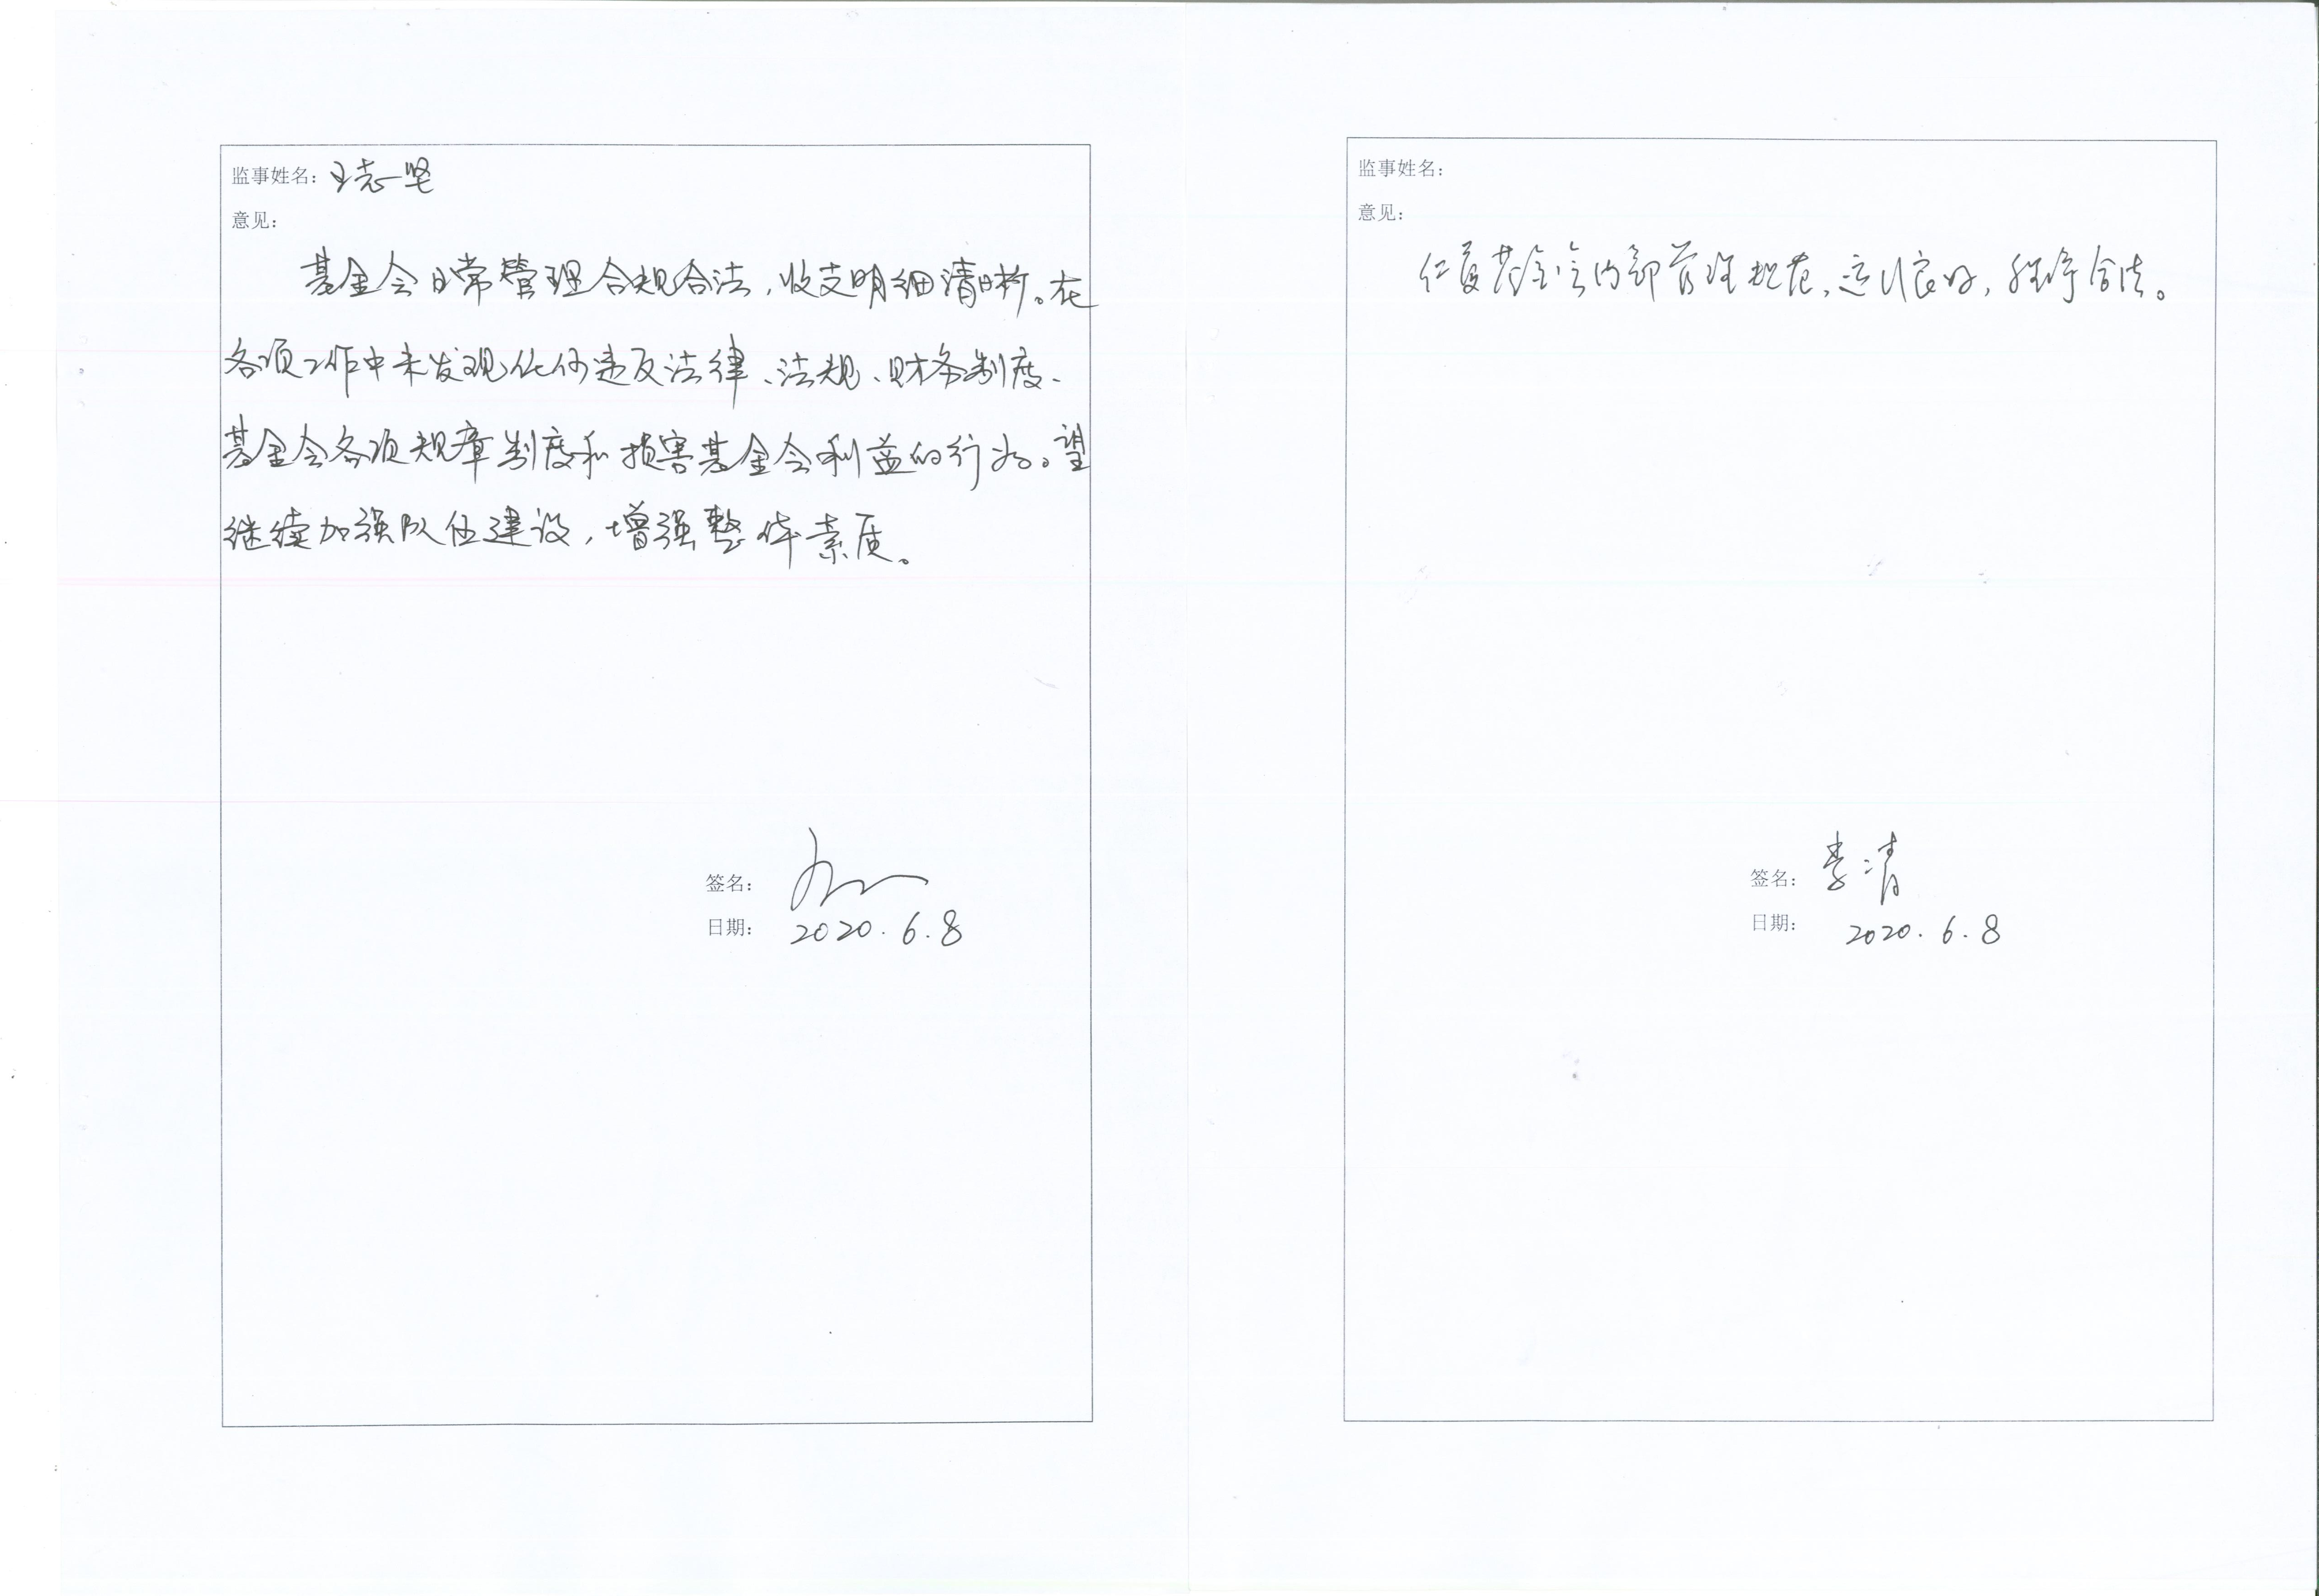 监事姓名：王志坚
意见：
基金会日常管理合规合法，收支明细清晰。在
各项工作中未发现任何违反法律、法规、财务制度、
基金会各项规章制度和损害基金会利益的行为。望
继续加强队伍建设，增强整体素质。
签名：
日期： 2020.6.8
监事姓名：
意见：
仁爱基金会内部管理规范，运行良好，程序合法。
签名：李清
日期： 2020.6.8